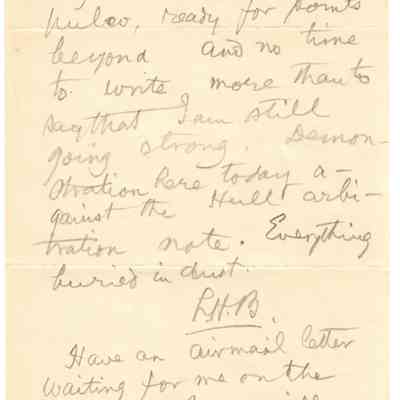 ready for points
beyond and no time
to write more than to
say that I am still
going strong. Demon-
stration here today a-
gainst the Hull arbi-
tration note. Everything
buried in dust.
L.H.B.
Have an airmail letter
waiting for me on the